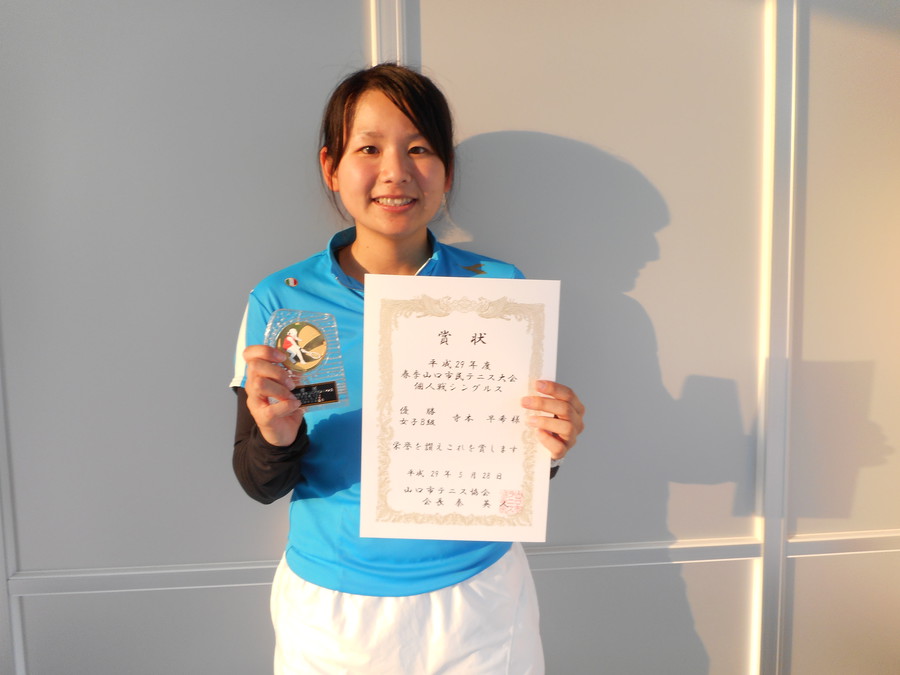 賞状
平成29年度
春季山口市民テニス大会
個人戦シングルス
優勝
女子B級 寺本 早希様
栄誉を讃えこれを賞します
平成29年5月28日
山口市テニス協会
会長 泰 英人